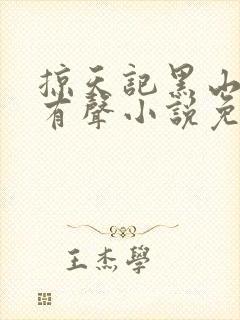 掠天記黑山
有聲小說免
王杰學